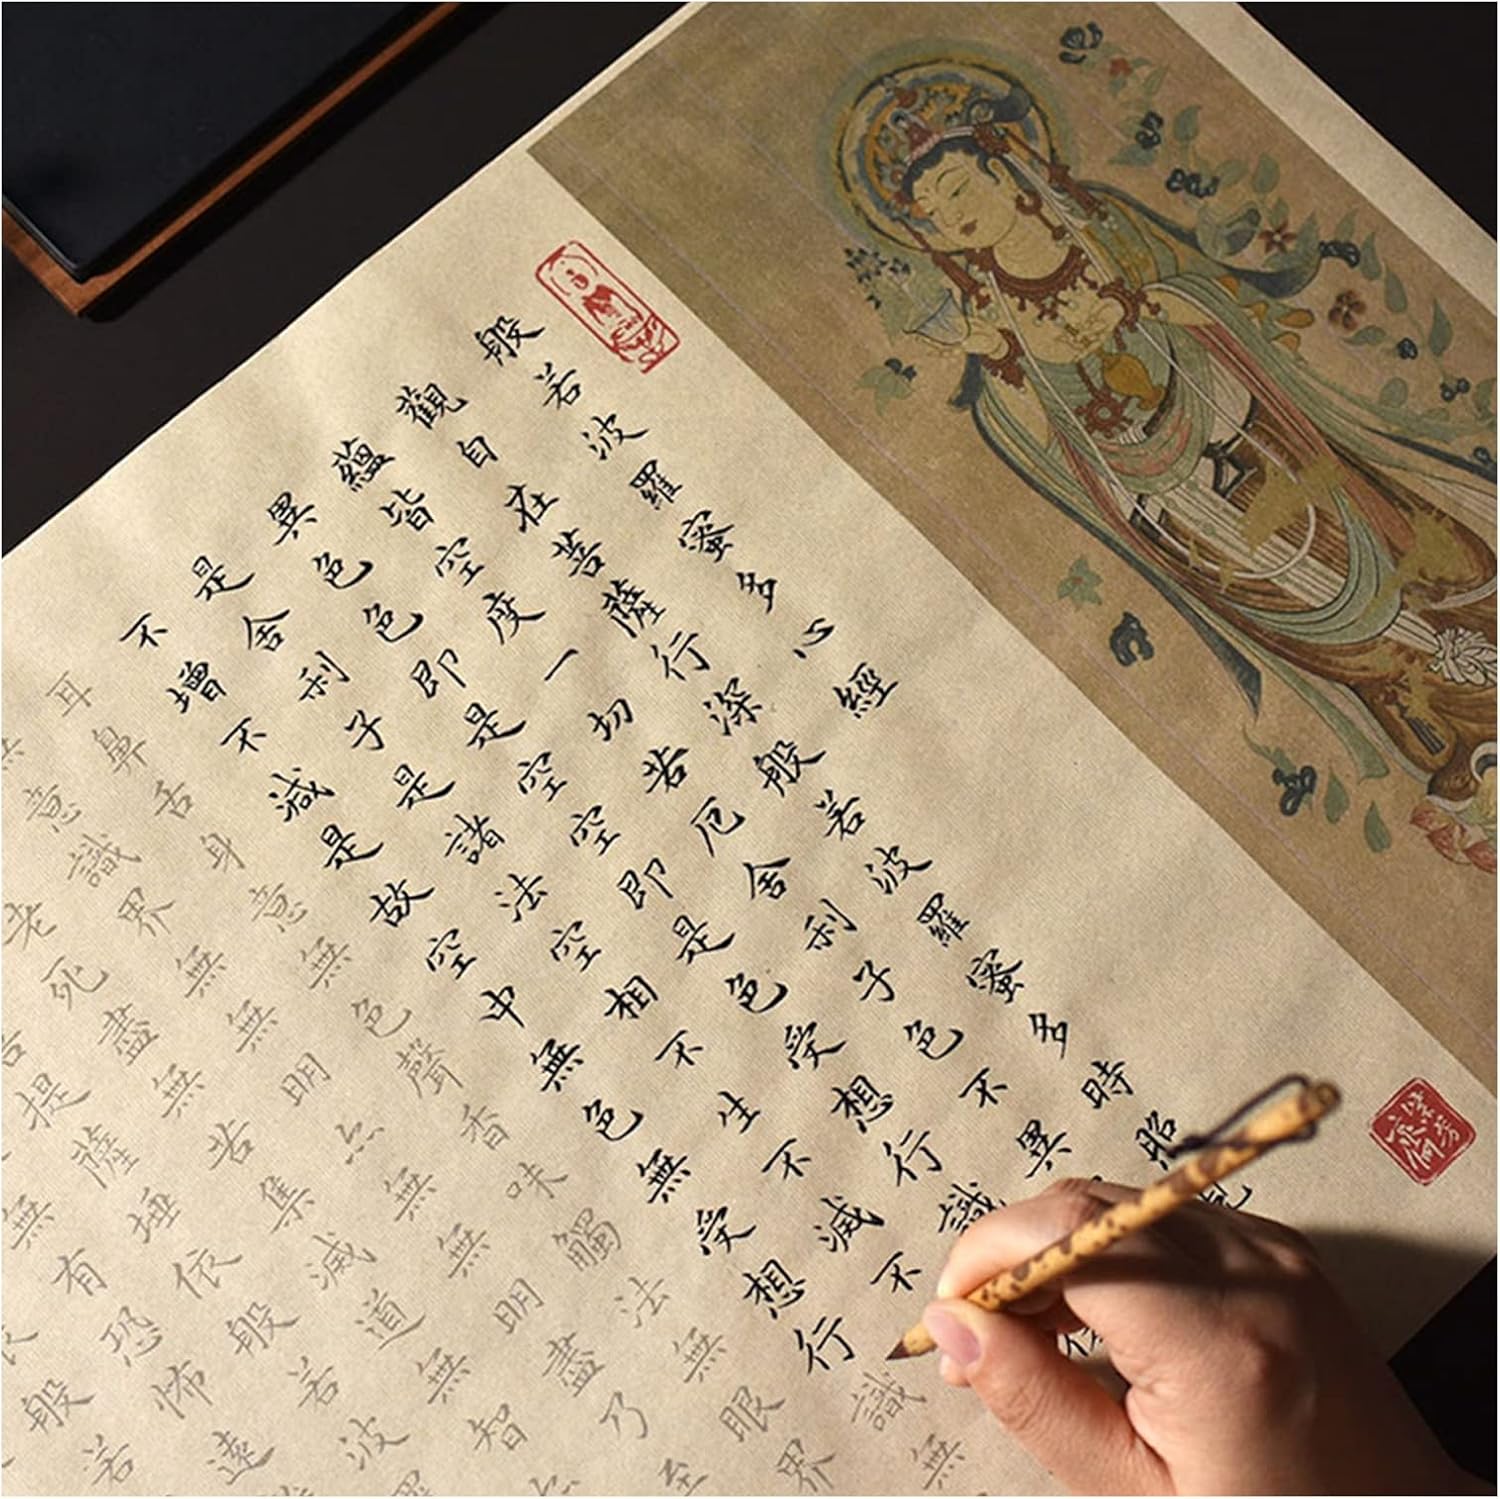 般若波羅蜜多心經
觀自在菩薩行深般若波羅蜜多時照見
蘊皆空度一切苦厄舍利子色不異
異色色即是空空即是色受想行識
是舍利子是諸法空相不生不滅不
不增不減是故空中無色無受想行識無
耳鼻舌身意無色聲香味觸法無眼界
意識界無無明亦無無明盡乃至
老死盡無苦集滅道無智亦
菩提薩埵依般若波羅
無有恐怖遠
般若